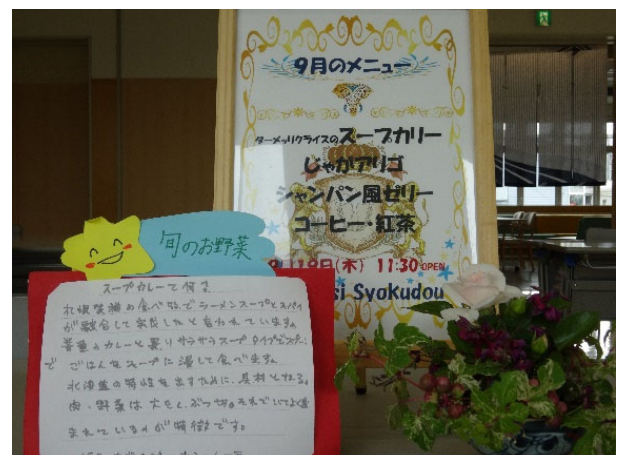 9月のメニュー
ターメリックライスのスープカリー
じゃがアリゴ
シャンパン風ゼリー
コーヒー・紅茶
9月19日(木) 11:30 OPEN
si Syokudou
旬のお野菜
スープカレーて何?
札幌発祥の食べ物でラーメンスープとスパイ
が融合して誕生したと言われています。
普通のカレーと異りサラサラスープ
ごはんをスープに浸して食べます。
北海道の特性を出すために、具材となる。
肉・野菜は大きく、ぶつ切。それでいてよく煮
まれているのが特徴です。